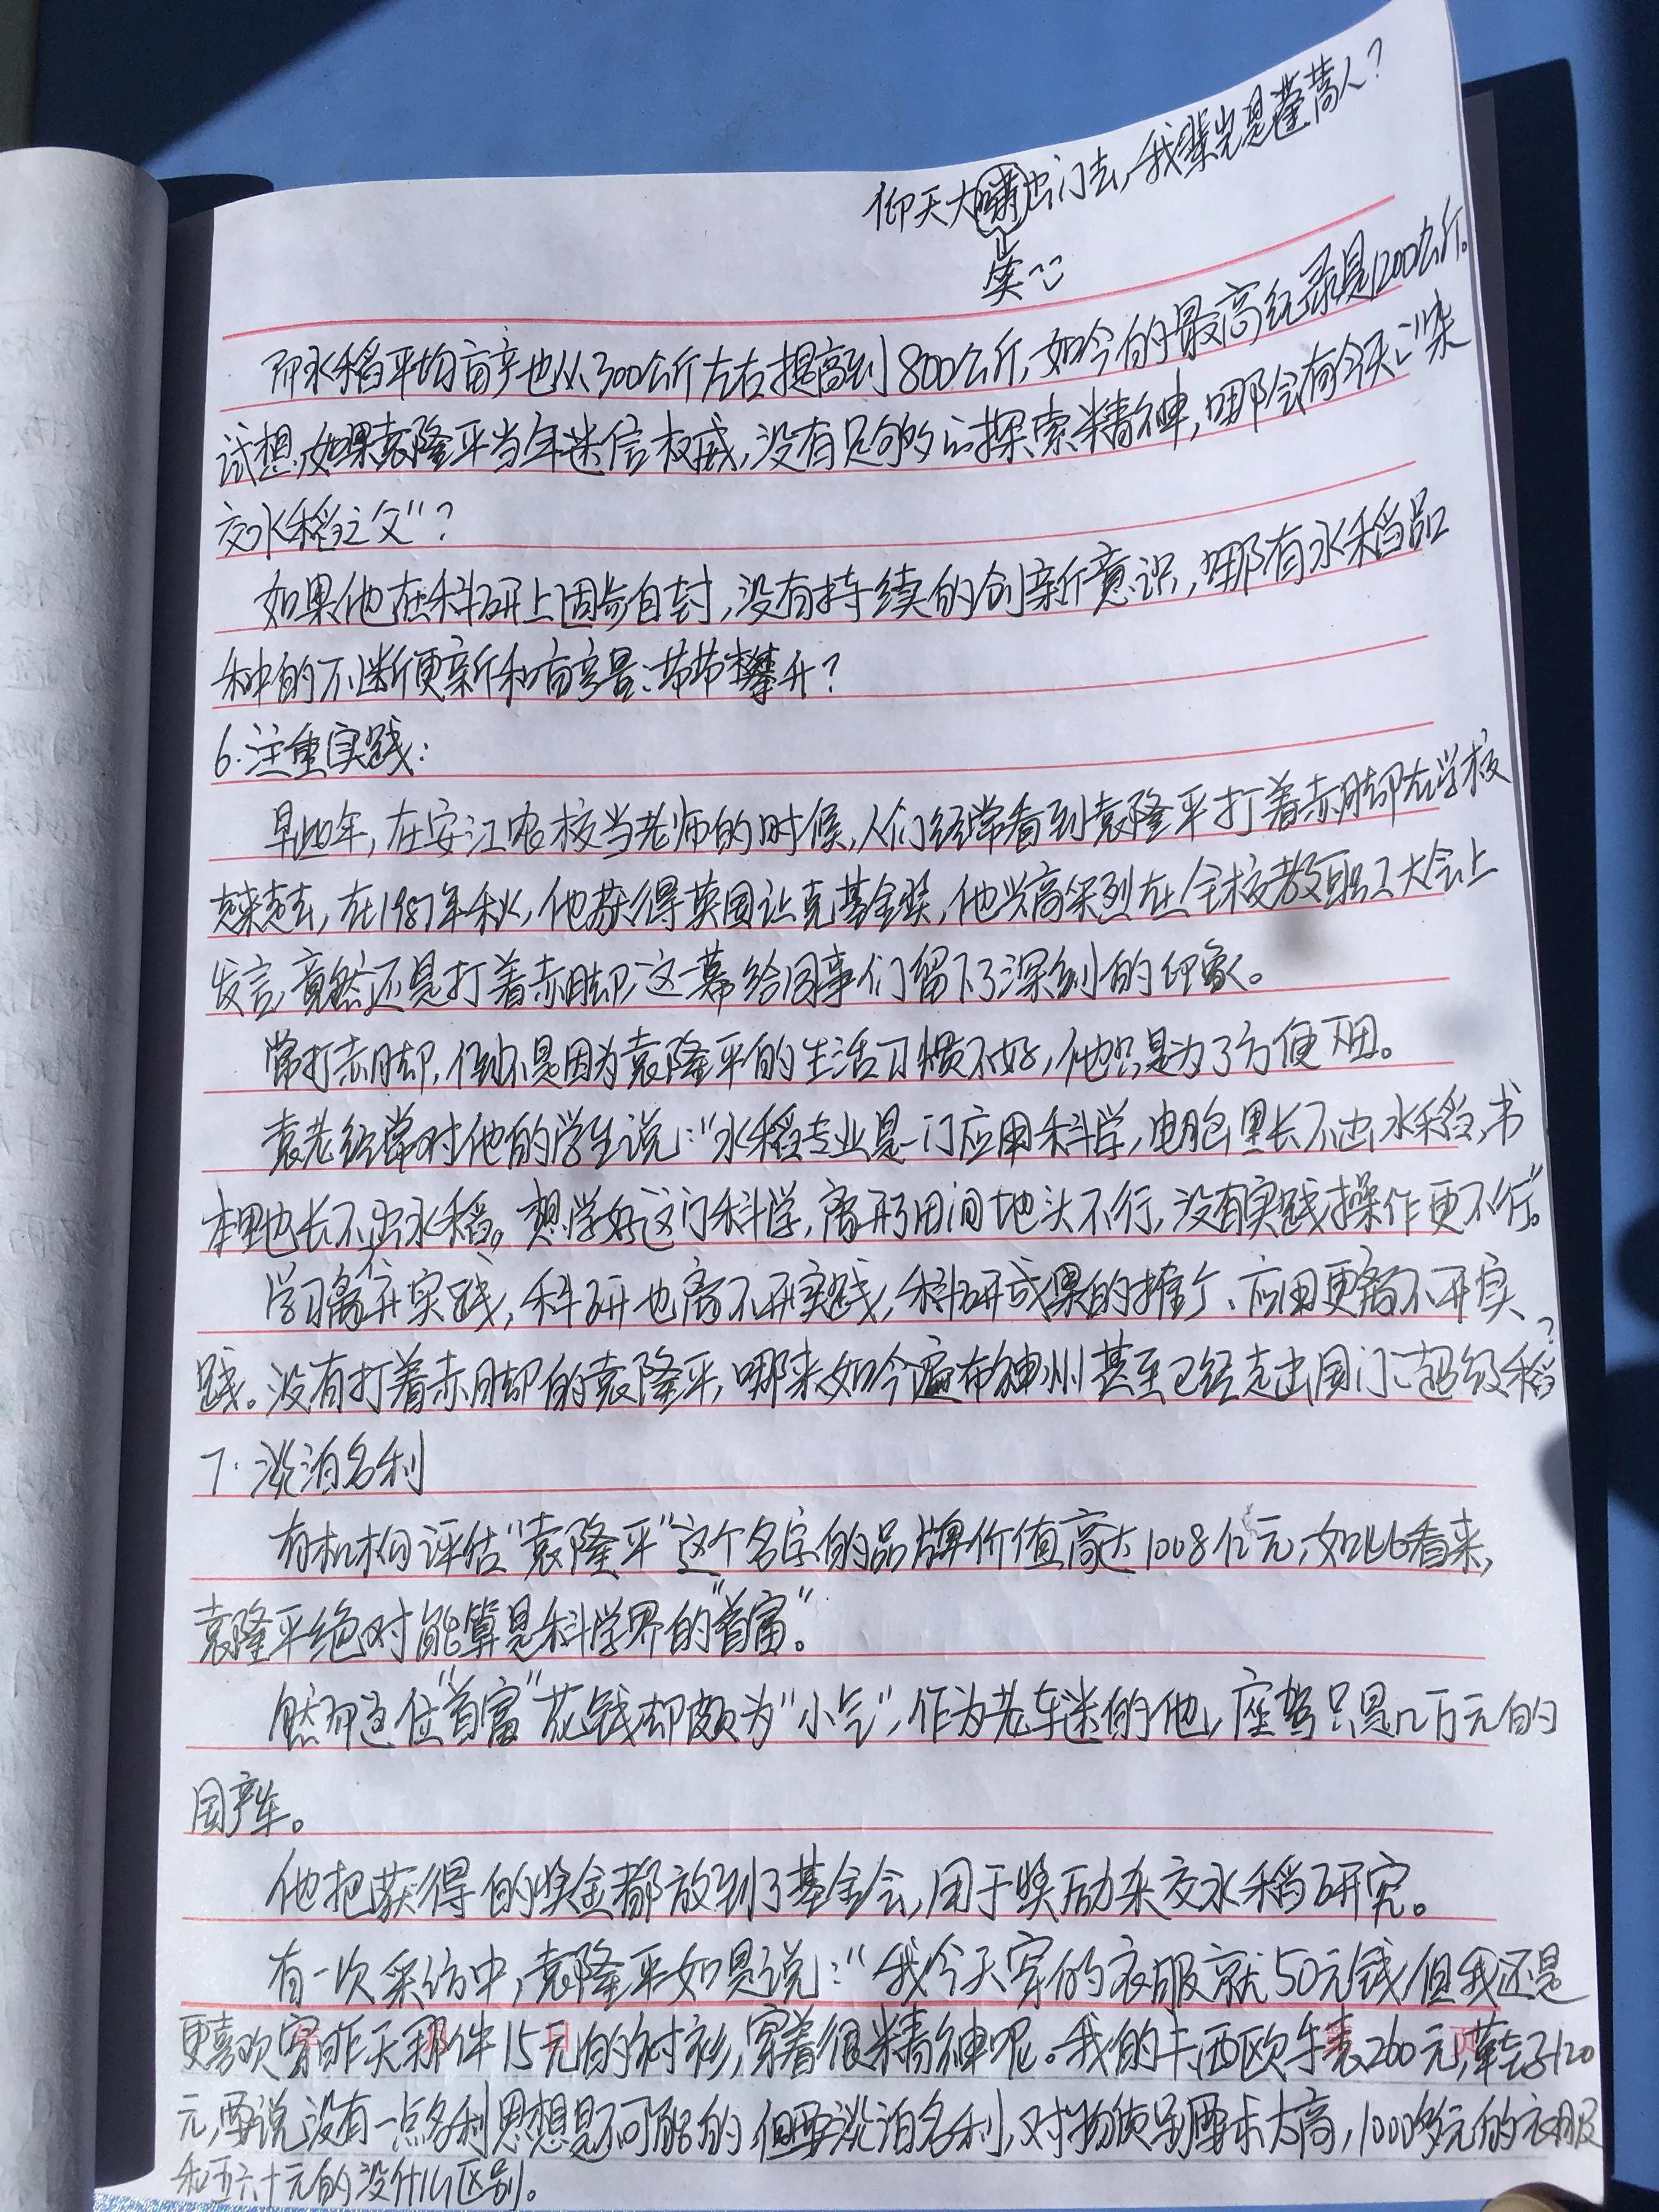 仰天大啸出门去，我辈岂是蓬蒿人？
笑
而水稻平均亩产也从300公斤左右提高到800公斤，如今的最高纪录是1200公斤。
试想，如果袁隆平当年迷信权威，没有足够的探索精神，哪会有今天的“杂
交水稻之父”？
如果他在科研上固步自封，没有持续的创新意识，哪有水稻品
种的不断更新和亩产量的节节攀升？
6.注重实践：
早些年，在安江农校当老师的时候，人们经常看到袁隆平打着赤脚在学校
走来走去，在1987年秋，他获得英国让克基金奖，他兴高采烈在全校教职工大会上
发言，竟然还是打着赤脚，这一幕给同事们留下了深刻的印象。
常打赤脚，倒不是因为袁隆平的生活习惯不好，他只是为了方便下田。
袁老经常对他的学生说：“水稻专业是一门应用科学，电脑里长不出水稻，书
本里也长不出水稻。想学好这门科学，离开了田间地头不行，没有实践操作更不行”。
学习离不开实践，科研也离不开实践，科研成果的推广、应用更离不开实
践。没有打着赤脚的袁隆平，哪来如今遍布神州甚至已经走出国门的超级稻？
7.淡泊名利
有机构评估“袁隆平”这个名字的品牌价值高达1008亿元，如此看来，
袁隆平绝对能算是科学界的“首富”。
然而这位“首富”花钱却颇为“小气”，作为老车迷的他，座驾只是几万元的
国产车。
他把获得的奖金都放到了基金会，用于奖励杂交水稻研究。
有一次采访中，袁隆平如是说：“我今天穿的衣服就50元钱，但我还是
更喜欢穿昨天那件15元的衬衫，穿着很精神呢。我的卡西欧手表260元，鞋子120
元，要说没有一点名利思想是不可能的，但要淡泊名利，对物质别要求太高，1000多元的衣服
和五六十元的没什么区别。